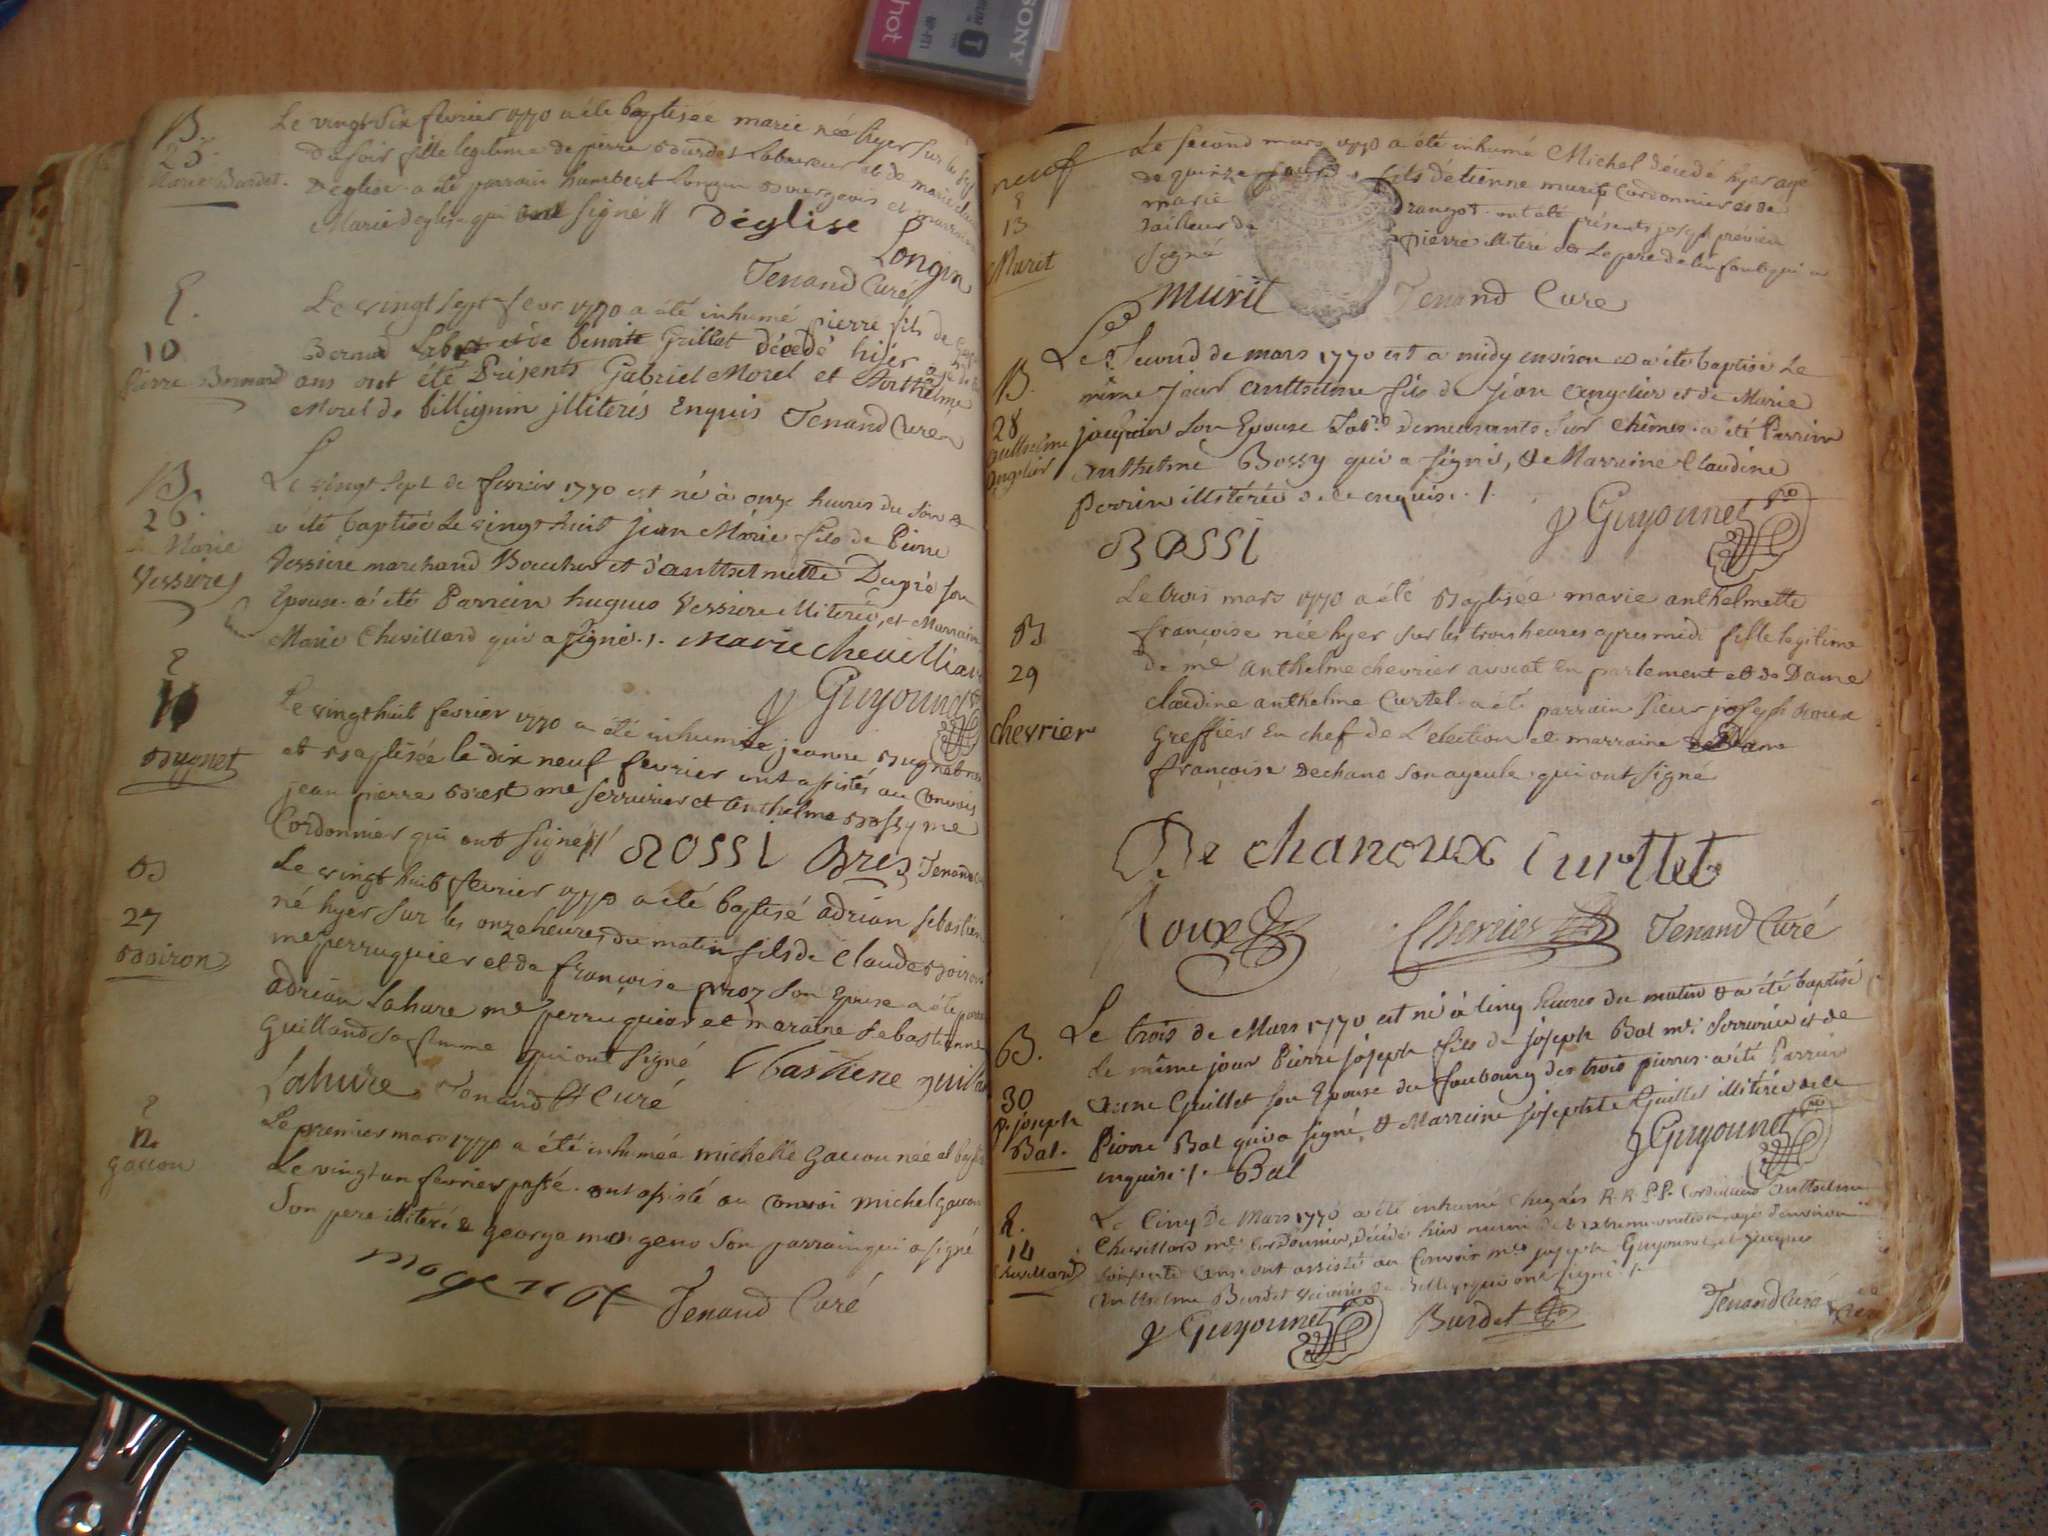 SONY
hot
B.
25.
Marie Burdet.
Le vingt six fevrier 1770 a été baptisée marie née hyer sur les
du soir fille legitime de pierre Burdet Laboureur et de marie
Deglise a été parrain humbert Longin Bourgeois et marraine
Marie deglise qui ont signé //
Déglise
Longin
Tenand Curé
E.
10
Pierre Bernard
Le vingt sept fevr 1770 a été inhumé pierre fils de
Bernard et de benoite Grillet décédé hiér
ans ont été Présents Gabriel Morel et Anthelme
Morel de billignin illiterés Enquis Tenand Curé
B.
26.
Marie
Vessiere
Le vingt sept de fevrier 1770 est né à onze heures du soir &
a été baptisé Le vingt huit jean Marie fils de Pierre
Vessiere marchand Boucher et d'anthelmette Dupré son
Epouse. a été Parrain hugues Vessiere illiteré, et Marraine
Marie Chevillard qui a signé ./. marie chevilliard
J Guyonnet
E
11
Bugnet
Le vingt huit fevrier 1770 a été inhumée jeanne Bugnet née
et Baptisée le dix neuf fevrier ont assistés au Convois
jean pierre Brest me serrurier et Anthelme Bossy me
Cordonnier qui ont signé // BOSSI Bres Tenand
B
27
Boiron
Le vingt huit fevrier 1770 a été baptisé adrian sebastien
né hyer sur les onze heures du matin fils de Claude Boiron
me perruquier et de françoise proz son Epouse a été parrain
adrian Lahure me perruquier et maraine sebastienne
Guilland sa femme qui ont signé
Lahure Tenand Curé
E
12
Gacion
Le premier mars 1770 a été inhumée michelle Gacion née et
Le vingt un fevrier passé. ont assisté au convoi michel gacion
son pere illiteré & george mongeno son parrain qui a signé
mogenot Tenand Curé
neuf
E
13
Murit
Le second mars 1770 a été inhumé Michel décédé hyer agé
de quinze jours fils détienne murit Cordonnier et de
marie Drangot. ont été présents joseph prémier
tailleur de pierre illiteré & Le pere de lenfant qui a
signé
murit Tenand Cure
B.
28
anthelme
Angelier
Le Second de mars 1770 est né a midy environ & a été baptisé Le
même jour anthelme fils de jean Angelier et de Marie
jacquin son Epouse Lab.rs demeurants sur Chêmes. a été Parrain
anthelme Bossy qui a signé, & Marraine Claudine
Perrin illitérée de ce enquise ./.
BOSSI
J Guyonnet
B
29
chevrier
Le trois mars 1770 a été Baptisée marie anthelmette
françoise née hyer sur les trois heures apres midi fille legitime
de me anthelme chevrier avocat En parlement et de Dame
claudine anthelme Curtet a été parrain sieur joseph Roux
Greffier En chef de L'election et marraine Dame
françoise Dechano son ayeule qui ont signé
De chanoux Curttet
Roux Chevrier Tenand Curé
B.
30
P. joseph
Bal.
Le trois de Mars 1770 est né à cinq heures du matin & a été baptisé
le même jour Pierre joseph fils de joseph Bal me Serrurier et de
Guillet son Epouse du faubourg des trois pierres. a été Parrain
Pierre Bal qui a signé, & Marraine josephte Guillet illitérée de ce
enquise ./. Bal
J Guyonnet
E.
14
Chevillard
Le Cinq De Mars 1770 a été inhumé Chez les R.R. P.P. Cordeliers anthelme
Chevillard me Cordonnier, décédé hier muni de L'extreme onction, agé d'environ
soixante ans. ont assisté au Convoir mes joseph Guyonnet, et jacques
Anthelme Burdet vicaires de Belley qui ont signé ./.
J Guyonnet Burdet Tenand Curé